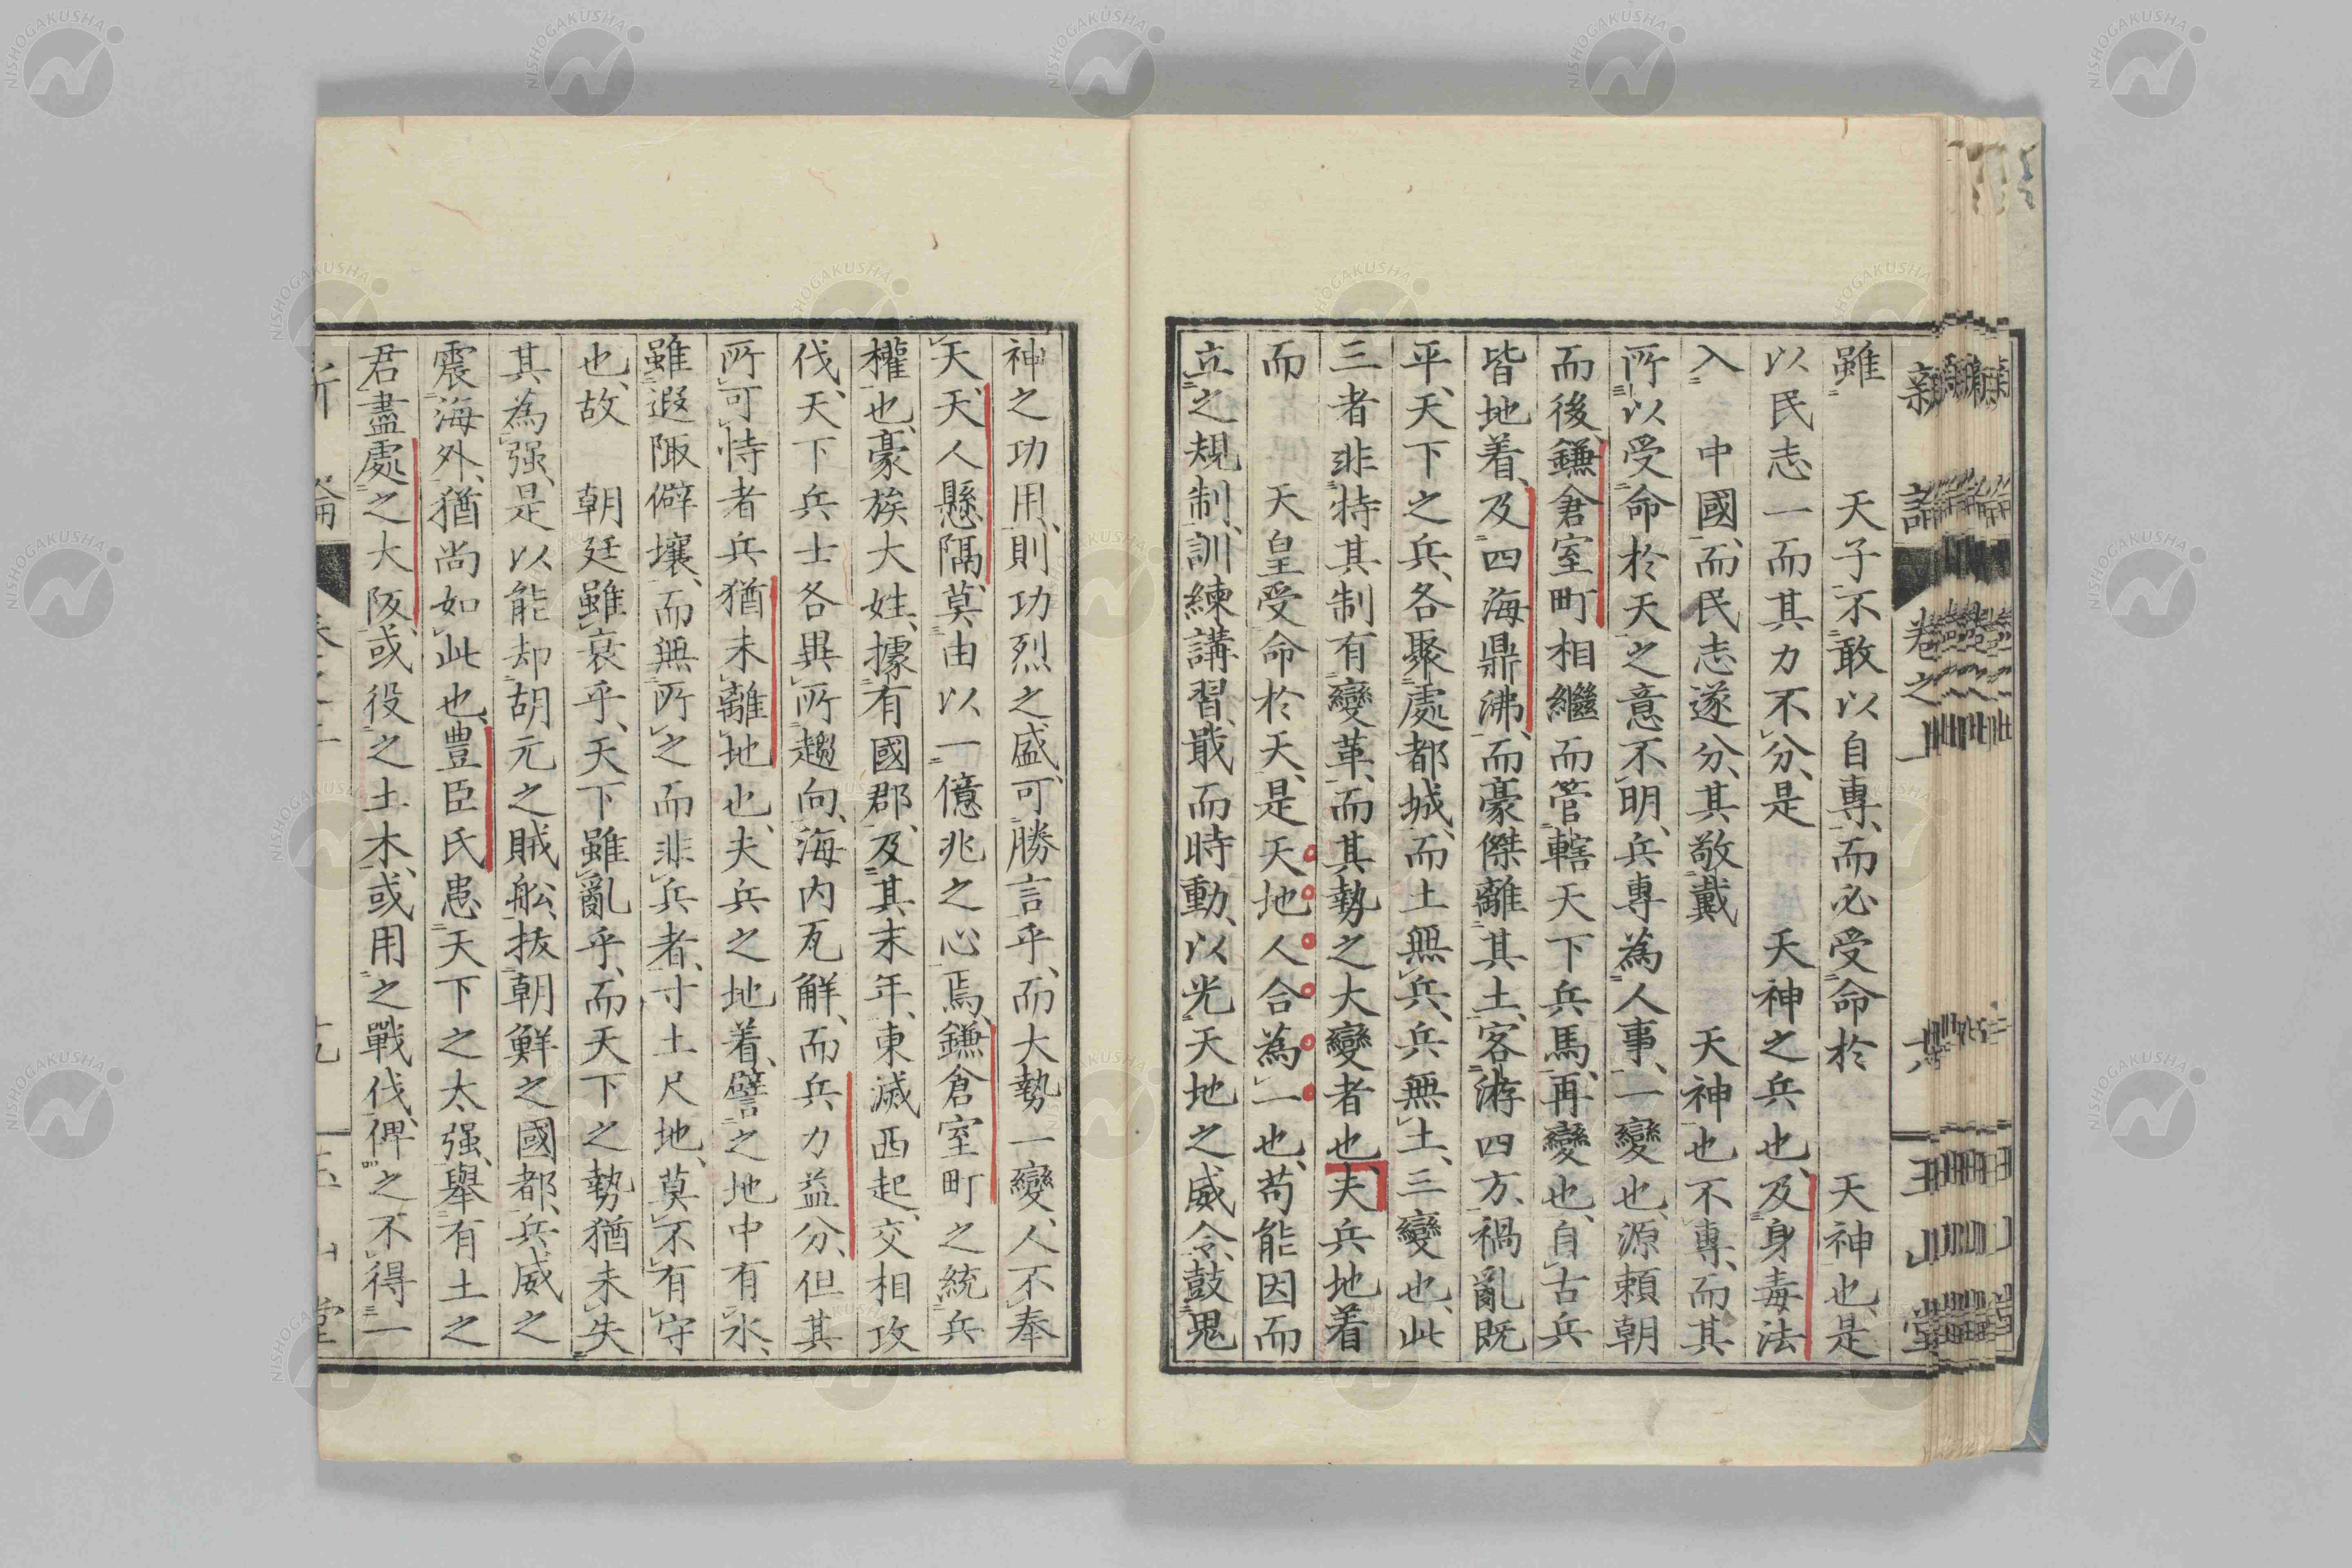 雖　天子不敢以自專、而必受命於　天神也、是
以民志一而其力不分、是　天神之兵也、及身毒法
入　中國、而民志遂分、其敬戴　天神也不專、而其
所以受命於天之意不明、兵專為人事、一變也、源賴朝
而後、鎌倉室町相繼而管轄天下兵馬、再變也、自古兵
皆地着、及四海鼎沸、而豪傑離其土、客游四方、禍亂既
平、天下之兵、各聚處都城、而土無兵、兵無土、三變也、此
三者非特其制有變革、而其勢之大變者也、夫兵地着
而　天皇受命於天、是天地人合為一也、苟能因而
立之規制、訓練講習、戢而時動、以光天地之威令、鼓鬼
神之功用、則功烈之盛、可勝言乎、而大勢一變、人不奉
天、天人懸隔、莫由以一億兆之心焉、鎌倉室町之統兵
權也、豪族大姓、據有國郡、及其末年、東滅西起、交相攻
伐、天下兵士各異所趨向、海内瓦解、而兵力益分、但其
所可恃者兵猶未離地也、夫兵之地着、譬之地中有水、
雖遐陬僻壤、而無所之而非兵者、寸土尺地、莫不有守
也、故　朝廷雖衰乎、天下雖亂乎、而天下之勢猶未失
其為强、是以能却胡元之賊舩、拔朝鮮之國都、兵威之
震海外、猶尚如此也、豊臣氏患天下之太强、舉有土之
君盡處之大阪、或役之土木、或用之戰伐、俾之不得一
新論　卷之上　六　玉山堂